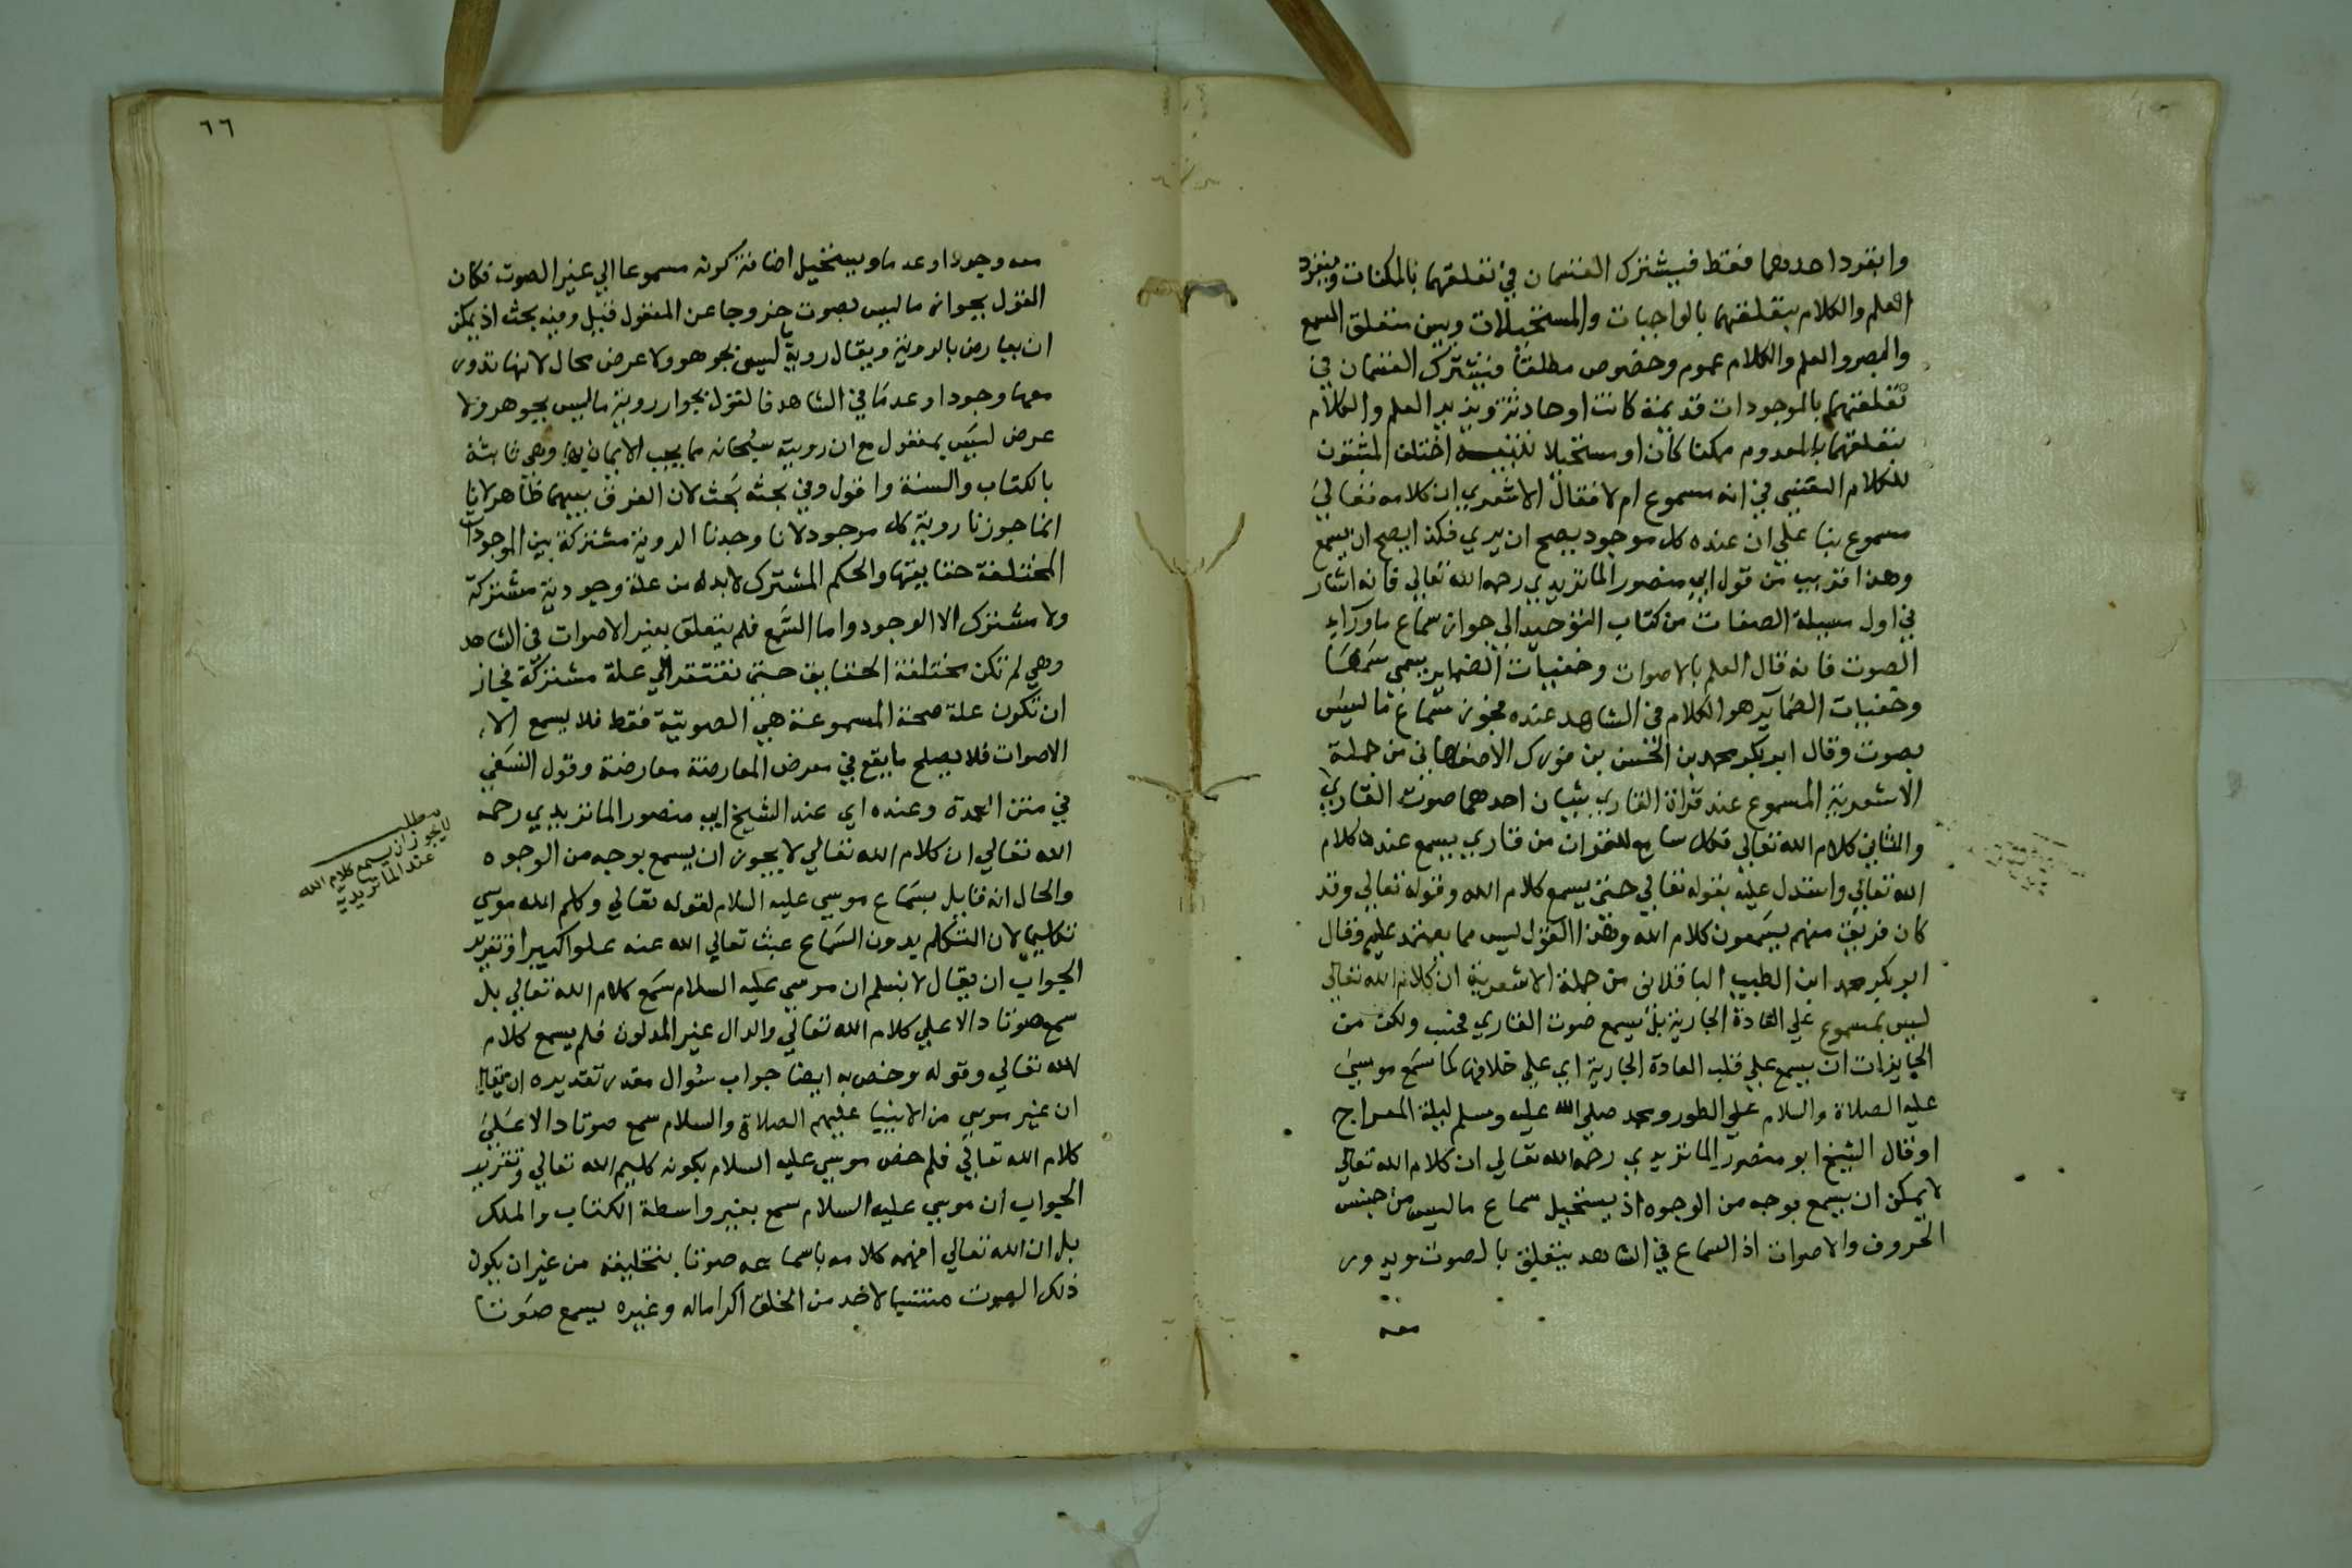 وانفرد احدهما فقط فيشترك القسمان في تعلقهما بالممكنات وينفرد
العلم والكلام بتعلقهما بالواجبات والمستحيلات وبين متعلق السمع
والبصر والعلم والكلام عموم وخصوص مطلقا فيشترك القسمان في
تعلقهما بالموجودات قديمة كانت او حادثة ويزيد العلم والكلام
بتعلقهما بالمعدوم ممكنا كان او مستحيلا تنبيه اختلف المثبتون
للكلام النفسي في انه مسموع ام لا فقال الاشعري ان كلامه تعالى
مسموع بنا علي ان عنده كل موجود يصح ان يري فكذا يصح ان يسمع
وهذا قريب من قول ابي منصور الماتريدي رحمه الله تعالي فانه اشار
في اول مسيلة الصفات من كتاب التوحيد الي جواز سماع ماورآء
الصوت فانه قال العلم بالاصوات وخفيات الضماير يسمى سمعا
وخفيات الضمآير هو الكلام في الشاهد عنده فجوز سماع ما ليس
بصوت وقال ابو بكر محمد بن الحسن بن فورك الاصفهاني من جملة
الاشعرية المسموع عند قراة القاري شيان احدهما صوت القاري
والثاني كلام الله تعالي فكل سامع للقران من قاري يسمع عنده كلام
الله تعالي واستدل عليه بقوله تعالي حتى يسمع كلام الله وقوله تعالي وقد
كان فريق منهم يسمعون كلام الله وهذا القول ليس مما يعتمد عليه وقال
ابو بكر محمد ابن الطيب الباقلاني من جملة الاشعرية ان كلام الله تعالي
ليس بمسموع علي العادة الجارية بل يسمع صوت القاري فحسب ولكن من
الجايزات ان يسمع علي قلب العادة الجارية اي علي خلافها كما سمع موسي
عليه الصلاة والسلام علي الطور ومحمد صلي الله عليه وسلم ليلة المعراج
اوقال الشيخ ابو منصور الماتريدي رحمه الله تعالي ان كلام الله تعالي
لا يمكن ان يسمع بوجه من الوجوه اذ يستحيل سماع ما ليس من جنس
الحروف والاصوات اذ السماع في الشاهد يتعلق بالصوت ويدور
معه
٦٦
معه وجودا او عدما ويستحيل اضافة كونه مسموعا الي غير الصوت فكان
القول بجواز ما ليس بصوت خروجا عن المعقول قيل وفيه بحث اذ يمكن
ان يعارض بالروية ويقال روية ما ليس بجوهر ولا عرض محال لانها تدور
معها وجودا وعدما في الشاهد فالقول بجواز روية ما ليس بجوهر ولا
عرض ليس بمعقول مع ان رويته سبحانه مما يجب الايمان بها وهي ثابتة
بالكتاب والسنة واقول وفي بحثه بحث لان الفرق بينهما ظاهر لانا
انما جوزنا روية كل موجود لانا وجدنا الروية مشتركة بين الموجودات
المختلفة حقايقها والحكم المشترك لابد له من علة وجودية مشتركة
ولا مشترك الا الوجود واما السمع فلم يتعلق بغير الاصوات في الشاهد
وهي لم تكن مختلفة الحقايق حتى تفتقر الي علة مشتركة فجاز
ان تكون علة صحة المسموعة هي الصوتية فقط فلا يسمع الا
الاصوات فلا يصلح ما يقع في معرض المعارضة معارضة وقول النسفي
في متن العمدة وعنده اي عند الشيخ ابي منصور الماتريدي رحمه
الله تعالي ان كلام الله تعالي لا يجوز ان يسمع بوجه من الوجوه
والحال انه قايل بسماع موسي عليه السلام لقوله تعالي وكلم الله موسي
تكليما لان التكلم بدون السماع عبث تعالي الله عنه علوا كبيرا وتقرير
الجواب ان يقال لا نسلم ان موسي عليه السلام سمع كلام الله تعالي بل
سمع صوتا دالا علي كلام الله تعالي والدال غير المدلول فلم يسمع كلام
الله تعالي وقوله وخص به ايضا جواب سؤال مقدر تقديره ان يقال
ان غير موسي من الانبيا عليهم الصلاة والسلام سمع صوتا دالا علي
كلام الله تعالي فلم خص موسي عليه السلام بكونه كليم الله تعالي وتقرير
الجواب ان موسي عليه السلام سمع بغير واسطة الكتاب والملك
بل ان الله تعالي افهمه كلامه باسماعه صوتا بتخليقه من غير ان يكون
ذلك الصوت مكتسبا لاحد من الخلق اكراما له وغيره يسمع صوتا
مطلب
لايجوز ان يسمع كلام الله
عند الماتريدية